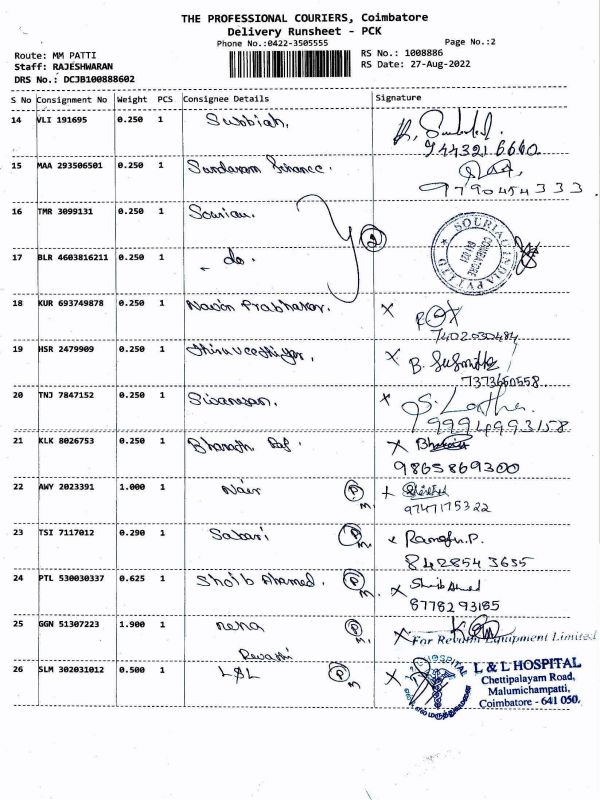 THE PROFESSIONAL COURIERS, Coimbatore
Delivery Runsheet - PCK
Phone No.:0422-3505555 Page No.:2
Route: MM PATTI RS No.: 1008886
Staff: RAJESHWARAN RS Date: 27-Aug-2022
DRS No.: DCJB100888602
S No Consignment No Weight PCS Consignee Details Signature
14 VLI 191695 0.250 1 Subbiah.
944321 6660
15 MAA 293506501 0.250 1 Sundaram Finance.
9790454333
16 TMR 3099131 0.250 1 Souriau. 2
SOURIAU INDIA PVT LTD
COIMBATORE
17 BLR 4603816211 0.250 1 - do.
18 KUR 693749878 0.250 1 Naveen Prabhakar. X
7402030484
19 HSR 2479909 0.250 1 X B. Susmitha
7373660558
20 TNJ 7847152 0.250 1 Sivanesan. X S. Latha.
9994993158
21 KLK 8026753 0.250 1 Bharath Raj. X
9865869300
22 AWY 2023391 1.000 1 Nair P M.
9747175322
23 TSI 7117012 0.290 1 Sabari P M. x Ramofu.P.
8428543655
24 PTL 530030337 0.625 1 Shoib Ahamed. P M. X Shoib Ahmed
8778293185
25 GGN 51307223 1.900 1 nena P M. X
For Revathi Equipment Limited
Revathi
26 SLM 302031012 0.500 1 L&L P M X
HOSPITAL
L & L HOSPITAL
Chettipalayam Road,
Malumichampatti,
Coimbatore - 641 050.